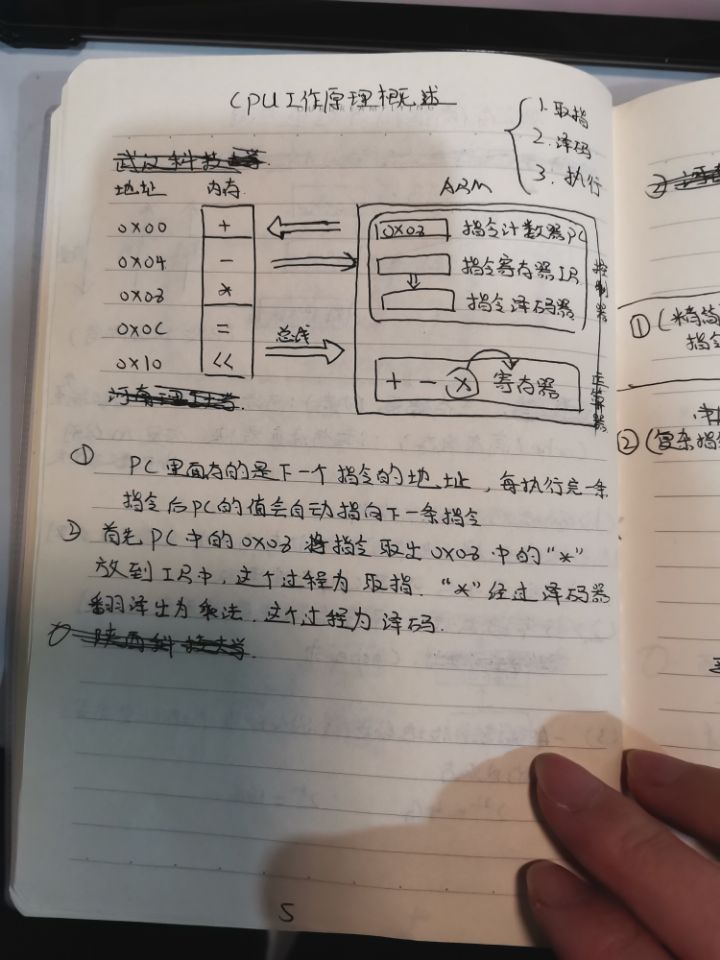 CPU工作原理概述
1. 取指
2. 译码
3. 执行
武汉科技大学
地址 内存 ARM
0x00 + 10x08 指令计数器PC
0x04 - 指令寄存器IR
0x08 * 指令译码器
控制器
0x0C =
总线
0x10 << + - x 寄存器
运算器
河南理工大学
① PC里面存的是下一个指令的地址，每执行完一条
指令后PC的值会自动指向下一条指令
② 首先PC中的0x08将指令取出0x08中的“*”
放到IR中，这个过程为取指.“*”经过译码器
翻译出为乘法.这个过程为译码.
陕西科技大学.
5
②
① (精简
指令
② (复杂指